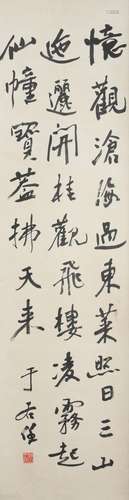 憶觀滄海過東萊照日三山
迤邐開桂觀飛樓凌霧起
仙幢寶蓋拂天来
于右任